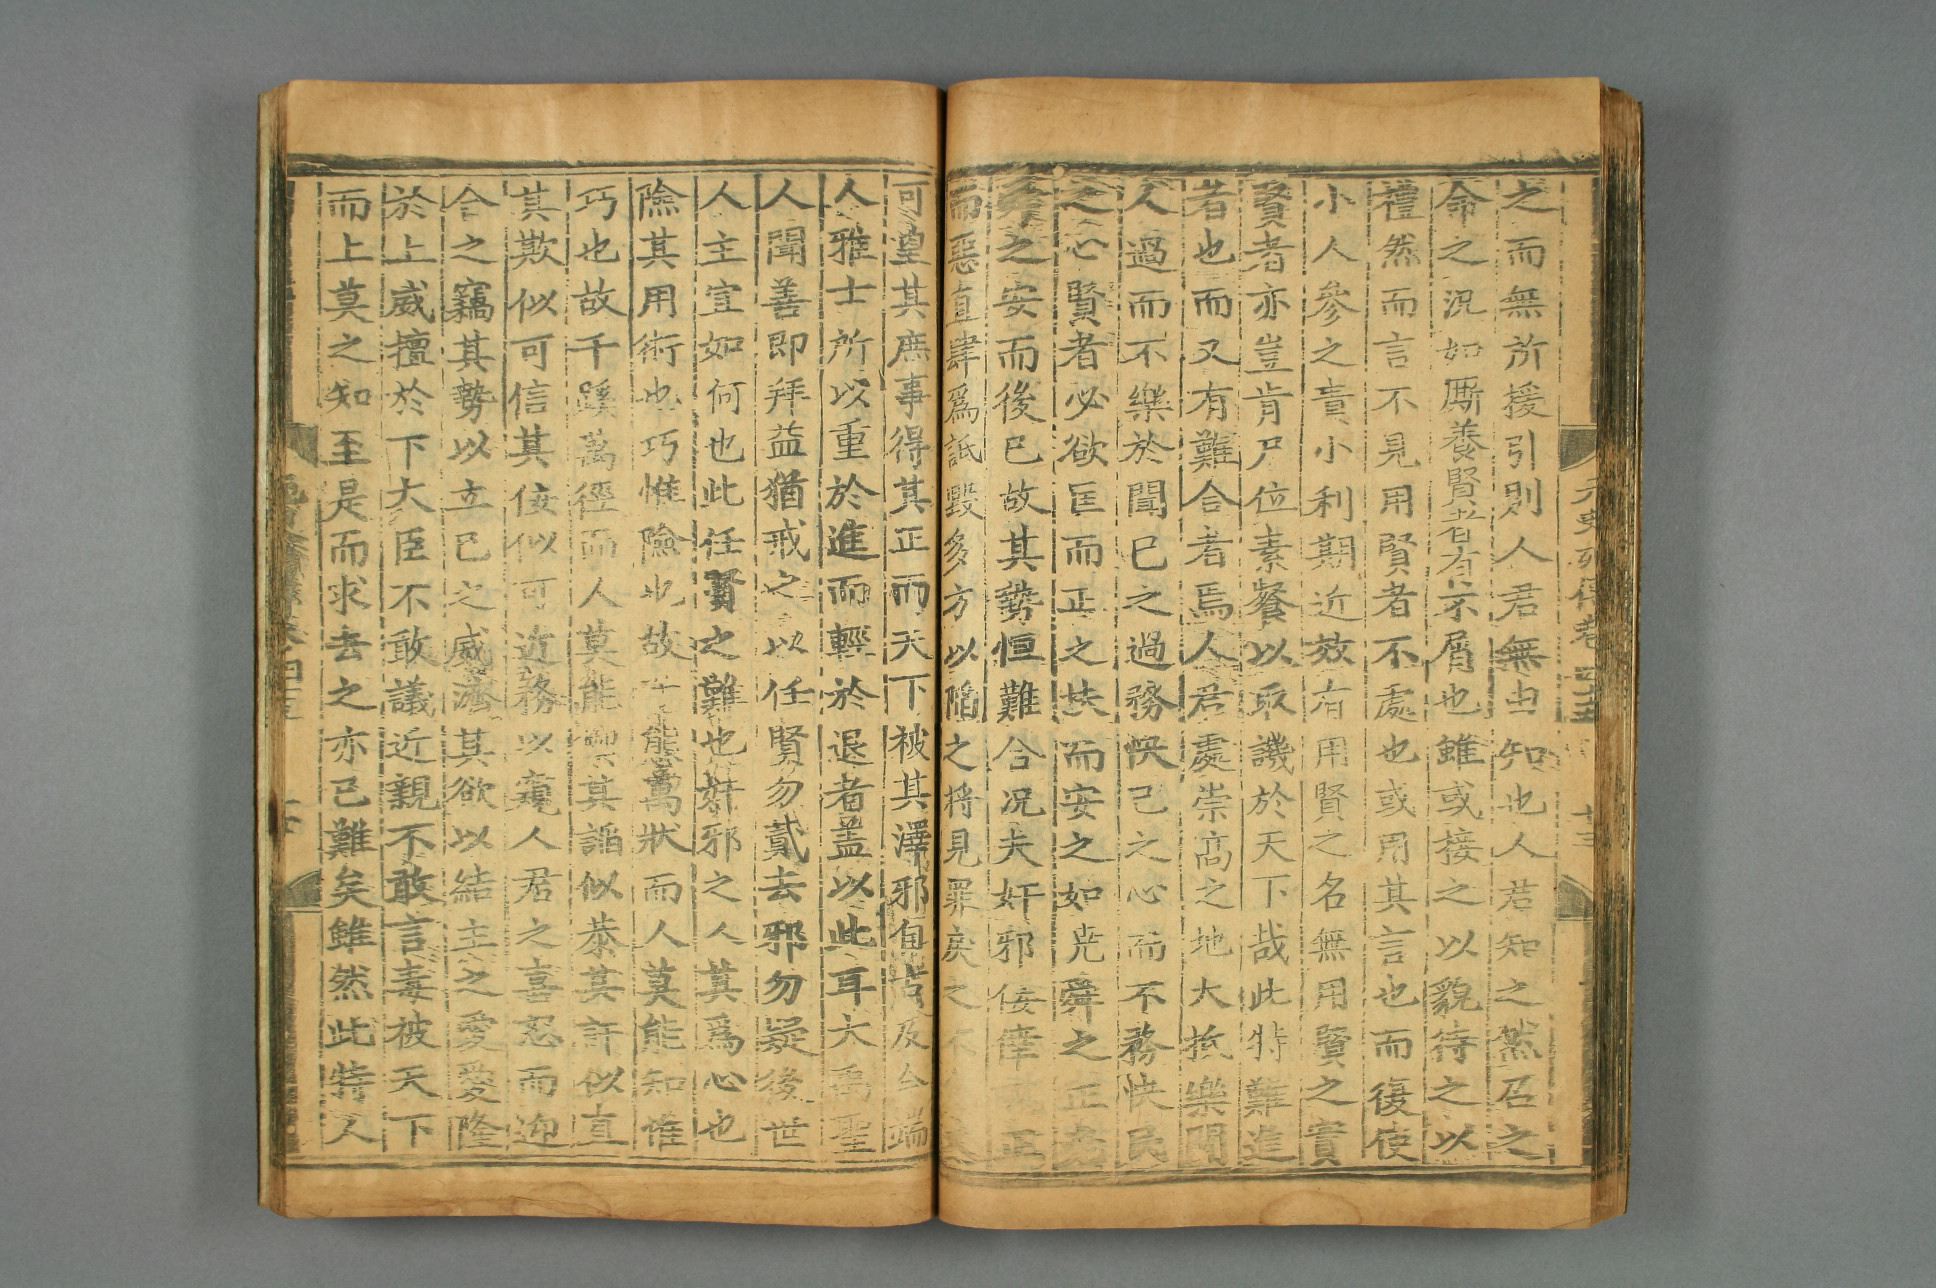 之而無所援引則人君無由知也人君知之然召之
命之況如廝養賢者有不屑也雖或接之以貌待之以
禮然而言不見用賢者不處也或用其言也而復使
小人參之責小利期近效有用賢之名無用賢之實
賢者亦豈肯尸位素餐以取譏於天下哉此特難進
者也而又有難合者焉人君處崇高之地大抵樂聞
人過而不樂於聞已之過務快己之心而不務快民
之心賢者必欲匡而正之扶而安之如堯舜之正堯
舜之安而後已故其勢恒難合况夫奸邪佞倖
而惡直肆為詆毀多方以陷之將見罪戾之不
可望其庶事得其正而天下被其澤邪自古及今端
人雅士所以重於進而輕於退者盖以此耳大禹聖
人聞善即拜益猶戒之以任賢勿貳去邪勿疑後世
人主宜如何也此任賢之難也奸邪之人其為心也
險其用術也巧惟險也故千態萬狀而人莫能知惟
巧也故千蹊萬徑而人莫能禦其諂似恭其訐似直
其欺似可信其佞似可近務以窺人君之喜怒而迎
合之竊其勢以立已之威濟其欲以結主之愛愛隆
於上威擅於下大臣不敢議近親不敢言毒被天下
而上莫之知至是而求去之亦已難矣雖然此特人
元史列傳卷四十五
十三